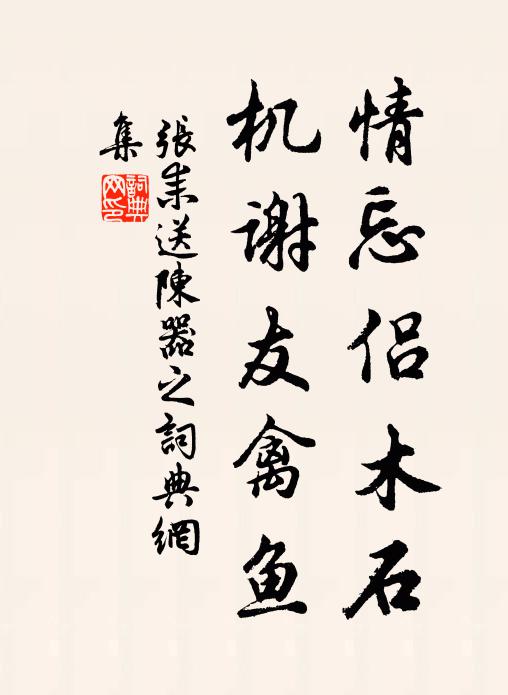 情忘侣木石
机谢友禽鱼
張耒送陳器之詞典網
集
詞典
网印